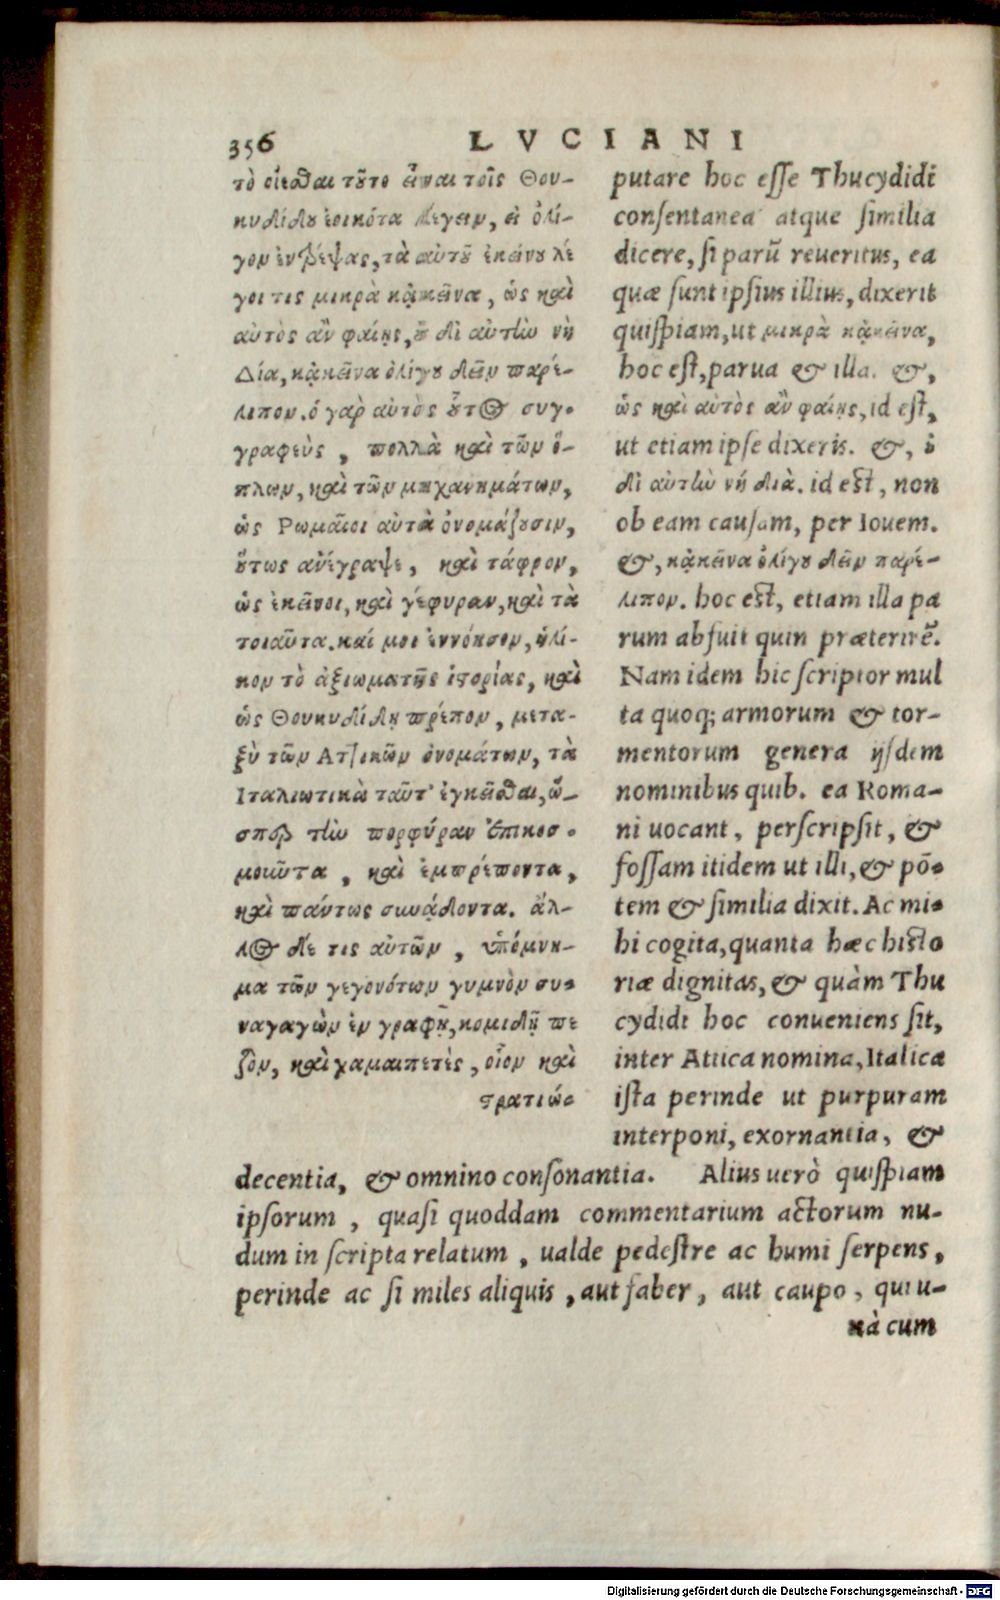 356 LVCIANI
τὸ οἴεσθαι τοῦτο εἶναι τοῖς Θου-
κυδίδου ἐοικότα λέγειν, εἰ ὀλί-
γον ἐντρέψας, τὰ αὐτοῦ ἐκείνου λέ
γοι τις μικρὰ κᾀκεῖνα, ὡς καὶ
αὐτὸς ἂν φαίης, οὐ δι᾽ αὐτὴν νὴ
Δία, κᾀκεῖνα ὀλίγου δεῖν παρέ-
λιπον. ὁ γὰρ αὐτὸς οὗτος συγ-
γραφεὺς, πολλὰ καὶ τῶν ὅ-
πλων, καὶ τῶν μηχανημάτων,
ὡς Ρωμαῖοι αὐτὰ ὀνομάζουσιν,
οὕτως ἀνέγραψε, καὶ τάφρον,
ὡς ἐκεῖνοι, καὶ γέφυραν, καὶ τὰ
τοιαῦτα. καί μοι ἐννόησον, ἡλί-
κον τὸ ἀξίωμα τῆς ἱστορίας, καὶ
ὡς Θουκυδίδῃ πρέπον, μετα-
ξὺ τῶν Αττικῶν ὀνομάτων, τὰ
Ιταλιωτικὰ ταῦτ᾽ ἐγκεῖσθαι, ὥ-
σπερ τὴν πορφύραν ἐπικοσ-
μοῦντα, καὶ ἐμπρέποντα,
καὶ πάντως συνᾴδοντα. ἄλ-
λος δέ τις αὐτῶν, ὑπόμνη-
μα τῶν γεγονότων γυμνὸν συ-
ναγαγὼν ἐν γραφῇ, κομιδῇ πε
ζὸν, καὶ χαμαιπετὲς, οἷον καὶ
στρατιώ-
putare hoc esse Thucydidi
consentanea atque similia
dicere, si parũ reueritus, ea
quæ sunt ipsius illius, dixerit
quispiam, ut μικρὰ κᾀκεῖνα,
hoc est, parua & illa. &,
ὡς καὶ αὐτὸς ἂν φαίης, id est,
ut etiam ipse dixeris. &, οὐ
δι᾽ αὐτὴν νή διὰ. id est, non
ob eam causam, per Iouem.
&, κᾀκεῖνα ὀλίγου δεῖν παρέ-
λιπον. hoc est, etiam illa pa
rum abfuit quin præterirẽ.
Nam idem hic scriptor mul
ta quoq; armorum & tor-
mentorum genera ijsdem
nominibus quib. ea Roma-
ni uocant, perscripsit, &
fossam itidem ut illi, & põ-
tem & similia dixit. Ac mi-
hi cogita, quanta hæc histo
riæ dignitas, & quàm Thu
cydidi hoc conueniens sit,
inter Attica nomina, Italica
ista perinde ut purpuram
interponi, exornantia, &
decentia, & omnino consonantia. Alius uerò quispiam
ipsorum, quasi quoddam commentarium actorum nu-
dum in scripta relatum, ualde pedestre ac humi serpens,
perinde ac si miles aliquis, aut faber, aut caupo, qui u-
nà cum
Digitalisierung gefördert durch die Deutsche Forschungsgemeinschaft - DFG